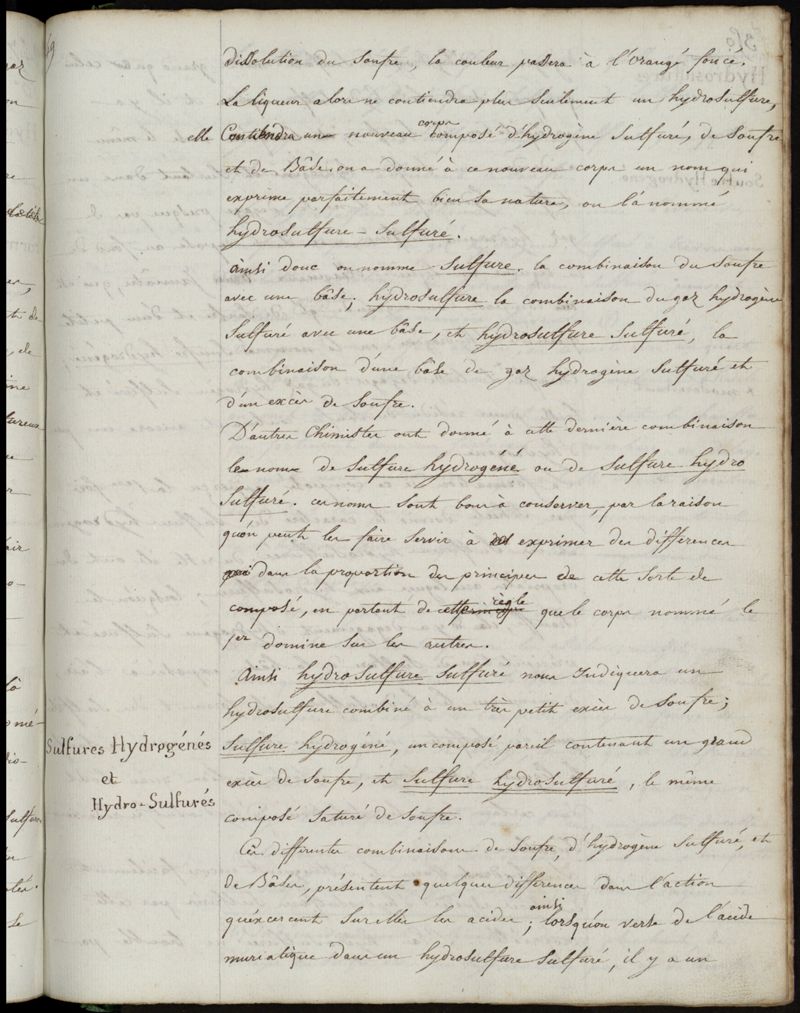 dissolution du Soufre, la couleur passera à l'orangé foncé.
La liqueur alors ne contiendra plus seulement un hydrosulfure,
elle Contiendra un nouveau corps composé d'hydrogène Sulfuré, de Soufre
et de Base. on a donné à ce nouveau corps un nom qui
exprime parfaitement bien sa nature, on l'a nommé
hydrosulfure-Sulfuré.
ainsi donc on nomme Sulfure, la combinaison du Soufre
avec une bâse; hydrosulfure la combinaison du gaz hydrogène
Sulfuré avec une bâse, et hydrosulfure Sulfuré, la
combinaison d'une bâse de gaz hydrogène Sulfuré et
d'un excès de Soufre.
D'autres Chimistes ont donné à cette dernière combinaison
le nom de Sulfure hydrogéné ou de Sulfure hydro
Sulfuré. ces noms sont bons à conserver, par la raison
qu'on peut les faire servir à exprimer des différences
dans la proportion des principes de cette Sorte de
composé, en partant de cette règle que le corps nommé le
1er domine sur les autres.
Ainsi hydrosulfure Sulfuré nous Indiquera un
hydrosulfure combiné à un très petit excès de Soufre;
Sulfures Hydrogénés
et
Hydro-Sulfurés
Sulfure hydrogéné, un composé pareil contenant un grand
excès de Soufre, et Sulfure hydrosulfuré, le même
composé saturé de Soufre.
Ces différentes combinaisons de Soufre, d'hydrogène Sulfuré, et
de Bâses, présentent quelques différences dans l'action
qu'exercent sur elles les acides; ainsi lorsqu'on verse de l'acide
muriatique dans un hydrosulfure Sulfuré, il y a un